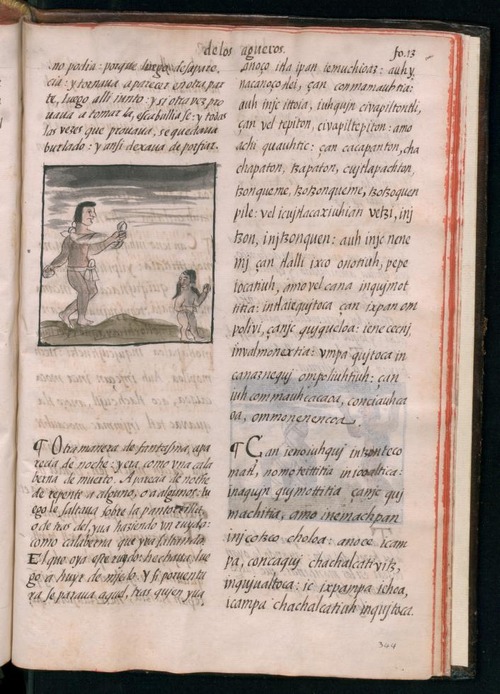 de los agueros.
fo. 13
no podia: porque luego desapare
cia: y tornaua a parecer en otra par
te, luego alli iunto: y si otra vez pro
uaua a tomarla, escabullase: y todas
las vezes que prouaua, se quedaua
burlado: y ansi dexaua de porfiar.
¶ Otra manera de fantasma, apa
recia de noche: y era, como vna cala
berna de muerto. Aparecia de noche
de repente a alguno, o a algunos: lu
ego le saltaua sobre la pantorrilla
o detras del, yua haziendo vn ruydo:
como calaberna que yua saltando.
El que oya este ruydo: hechaua lue
go a huyr de miedo. Y si por uentu
ra se paraua aquel, tras quien yua,
anoço itla ipan iemuchioaz: auh y,
nacanoço del, çan commamauhtia:
auh injc ittoia, iuhqujn civapiltontli,
çan vel tepiton, civapiltepiton: amo
achi quauhtic: çan cacapanton, cha
chapaton, tzapaton, cujtlapachton,
tzonqueme, tzotzonqueme, tzotzoquen
pile: vel icujtlacaxiuhian vetzi, inj
tzon, injtzonquen: auh injc nene
mj çan tlalli ixco onotiuh, pepe
iocatiuh, amo vel cana inqujmot
titia: intlatequjtoca çan ixpan om
polivi, çanjc qujqueloa: iene cecnj
invalmonextia: vmpa qujtoca in
canaznequj ompoliuhtiuh: çan
iuh commauhcacaoa, conciauhca
oa, ommonenencoa.
¶ Çan ieno iuhquj in tzonteco
matl, nomoteittitia in iooaltica:
in aqujn qujmottitia çanjc quj
machitia, amo ineinachpan
injcotzco choloa: anoce icam
pa, concaquj chachalcativitz,
inqujualtoca: ic ixpampa iehoa,
icampa chachalcatiuh inqujtoca.
344